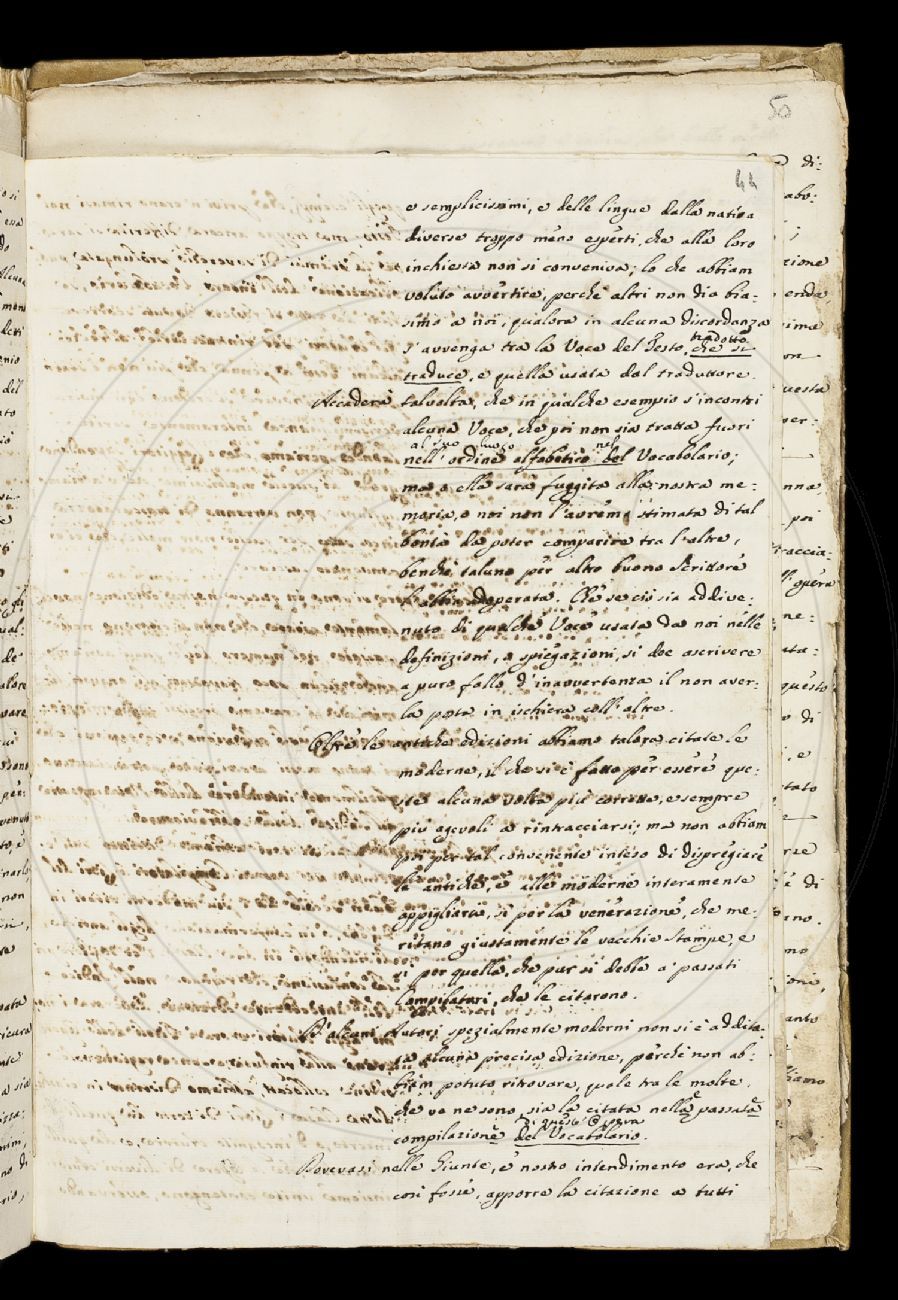 50
44
e semplicissimi, e delle lingue dalla nativa
diverse troppo meno esperti, che alla loro
inchiesta non si conveniva; lo che abbiam
voluto avvertire, perchè altri non dia bia-
simo a noi, qualora in alcuna discordanza
s'avvenga tra la Voce del Testo, che si
tradotto
traduce, e quella usata dal traduttore.
Accaderà talvolta, che in qualche esempio s'incontri
alcuna Voce, che poi non sia tratta fuori
al suo luogo nel
nell'ordine alfabetico del Vocabolario;
ma o ella sarà fuggita alla nostra me-
moria, o noi non l'avremo stimata di tal
bontà da poter comparire tra l'altre,
benchè taluno per altro buono Scrittore
l'abbia adoperata. Che se ciò sia addive-
nuto di qualche Voce usata da noi nelle
definizioni, o spiegazioni, si dee ascrivere
a puro fallo d'inavvertenza il non aver-
la posta in ischiera coll'altre.
Oltre le antiche edizioni abbiamo talora citate le
moderne, il che si è fatto per essere que-
ste alcuna volta più corrette, e sempre
più agevoli a rintracciarsi; ma non abbiam
poi per tal convenente inteso di dispregiare
le antiche, e alle moderne interamente
appigliarci, sì per la venerazione, che me-
ritano giustamente le vecchie Stampe, e
sì per quella, che pur si debbe a' passati
Compilatori, che le citarono.
D'alcuni Autori spezialmente moderni non si è addita-
ta alcuna precisa edizione, perchè non ab-
biam potuto ritrovare, quale tra le molte,
che ve ne sono, sia la citata nella passata
di quest'Opera
compilazione del Vocabolario.
Dovevasi nelle Giunte, e nostro intendimento era, che
così fosse, apporre la citazione a tutti